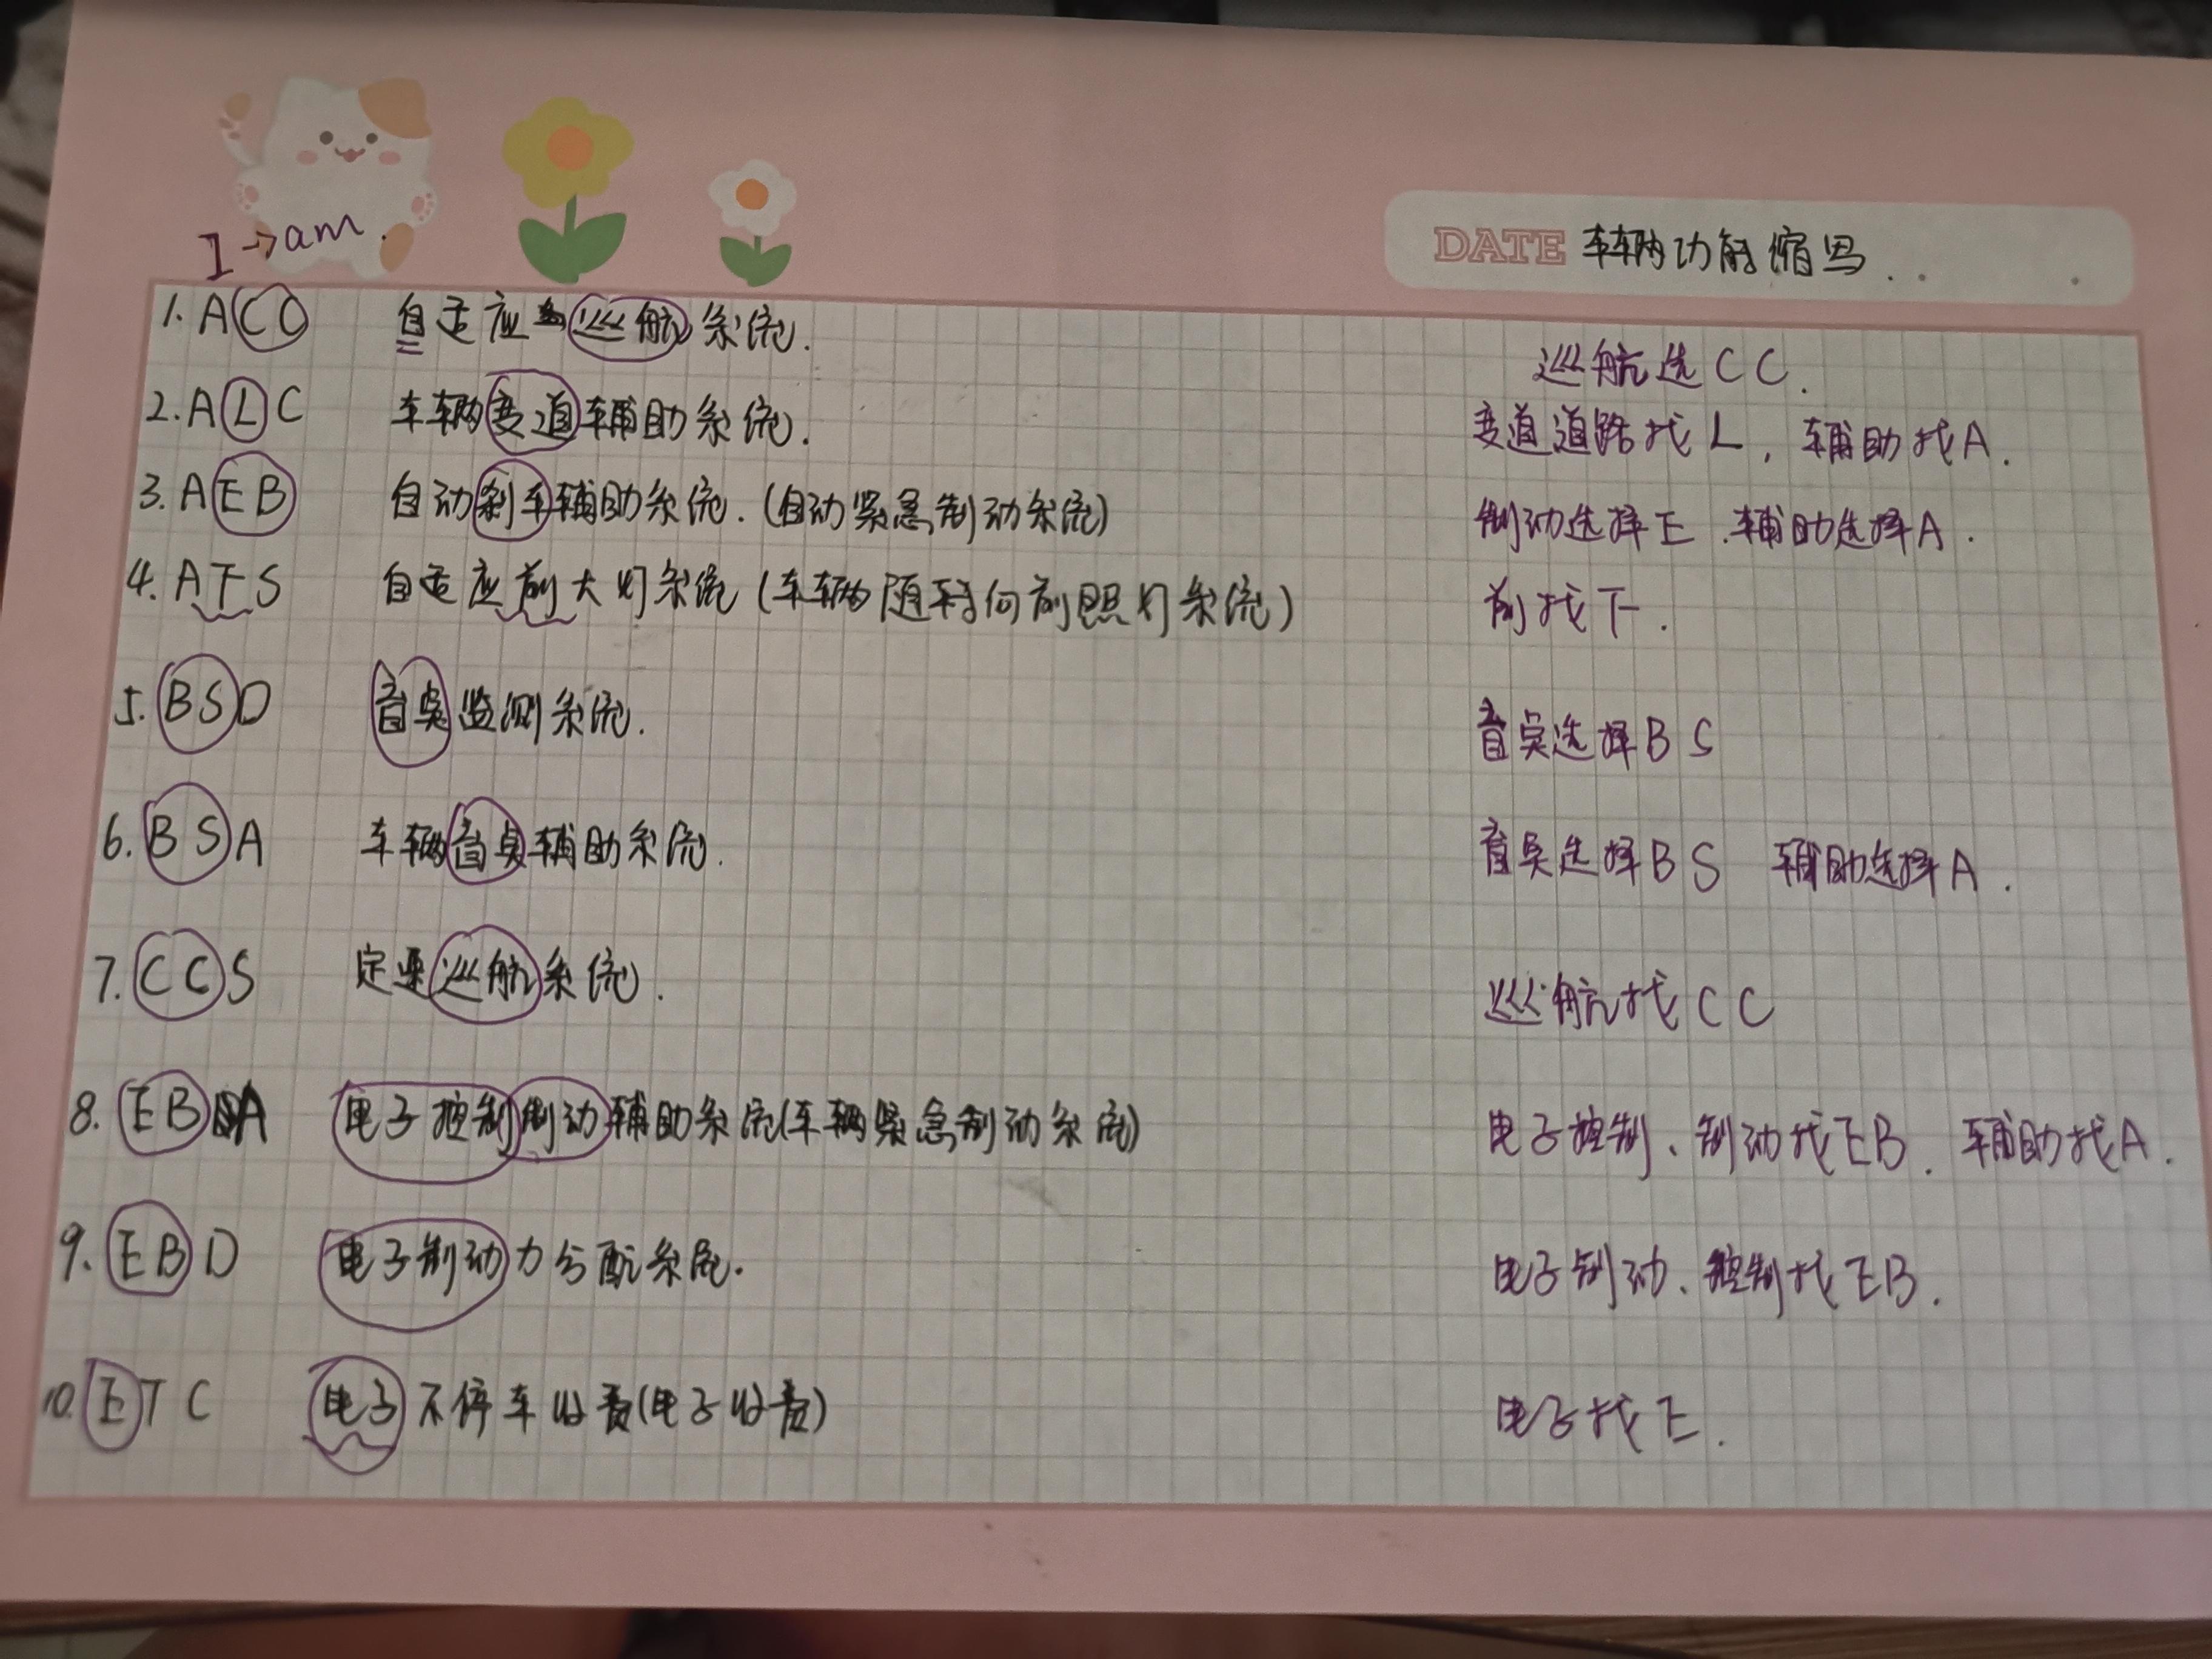 I→am.
DATE 车辆功能缩写..
1. ACC 自适应巡航系统. 巡航选CC.
2. ALC 车辆变道辅助系统. 变道道路找L, 辅助找A.
3. AEB 自动刹车辅助系统.(自动紧急制动系统) 制动选择E.辅助选择A.
4. AFS 自适应前大灯系统(车辆随转向前照灯系统) 前找F.
5. BSD 盲点监测系统. 盲点选择BS
6. BSA 车辆盲点辅助系统. 盲点选择BS 辅助选择A.
7. CCS 定速巡航系统. 巡航找CC
8. EBA 电子控制制动辅助系统(车辆紧急制动系统) 电子控制、制动找EB. 辅助找A.
9. EBD 电子制动力分配系统. 电子制动、控制找EB.
10. ETC 电子不停车收费(电子收费) 电子找E.